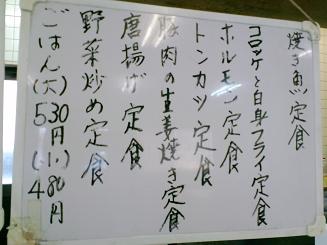 焼き魚定食
コロッケと白身フライ定食
ホルモン定食
トンカツ定食
豚肉の生姜焼き定食
唐揚げ定食
野菜炒め定食
ごはん(大)530円(小)480円